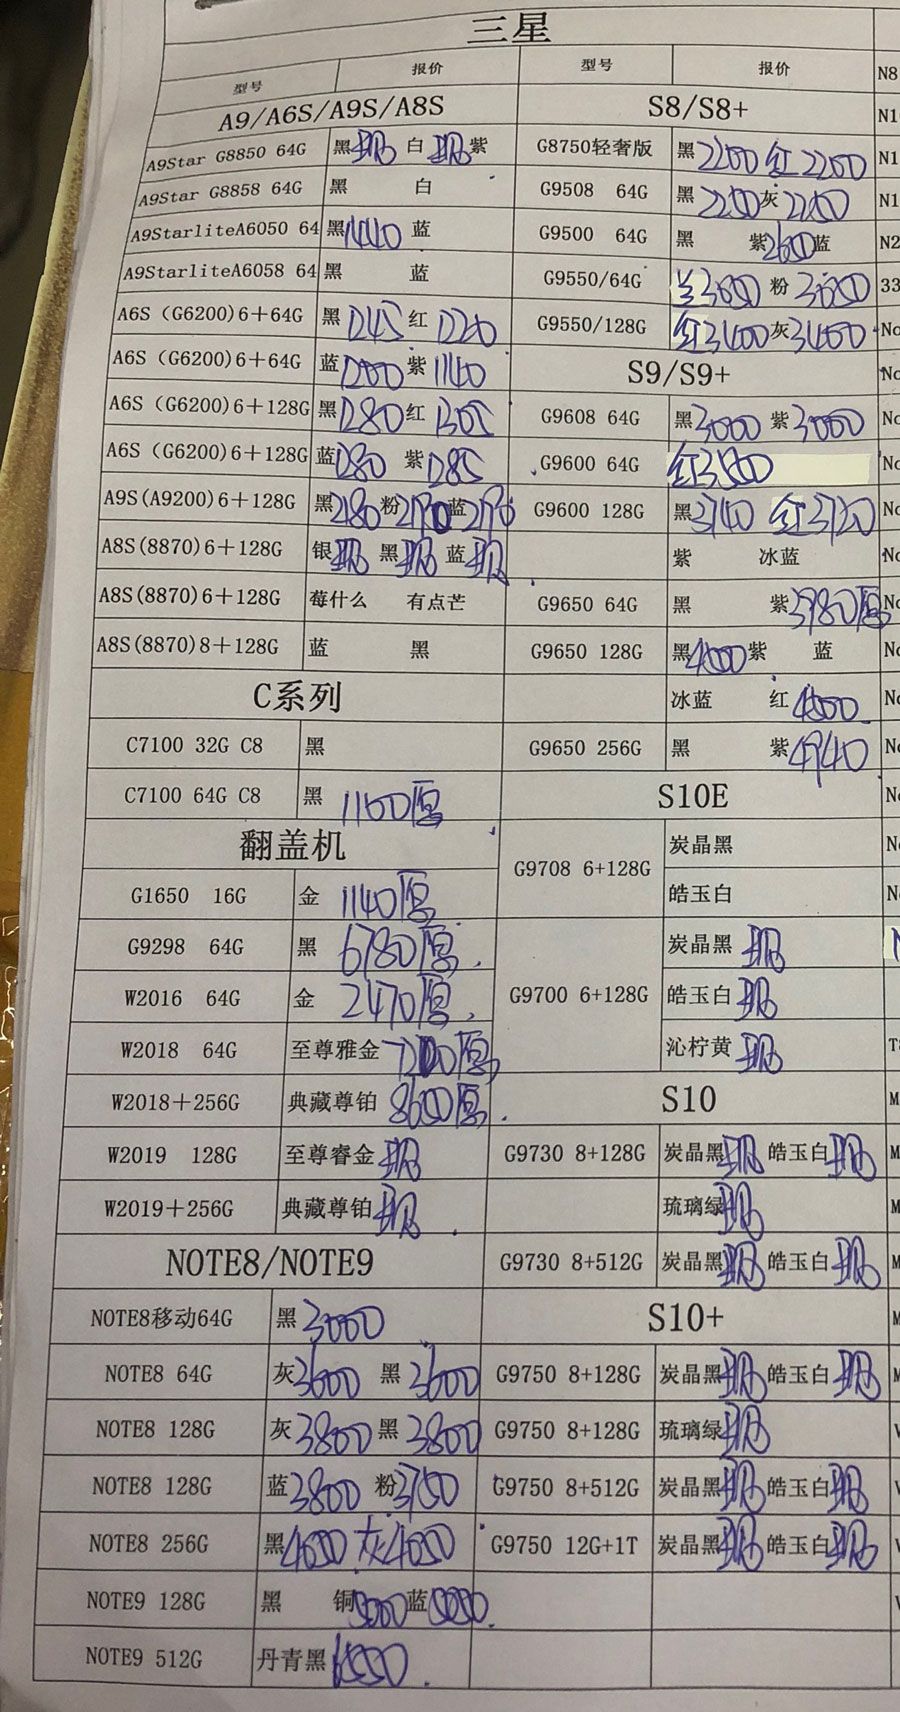 三星
型号 报价 型号 报价
N8
A9/A6S/A9S/A8S S8/S8+
N1
A9Star G8850 64G 黑 现 白 现 紫 G8750轻奢版 黑 2200 红 2200
N1
A9Star G8858 64G 黑 白 G9508 64G 黑 灰
N1
A9StarliteA6050 64 黑 1440 蓝 G9500 64G 黑 紫 2600 蓝
N2
A9StarliteA6058 64 黑 蓝 G9550/64G 粉
33
A6S（G6200)6＋64G 黑 1245 红 1220 G9550/128G 红 3400 灰 3400
No
A6S（G6200)6＋64G 蓝 1200 紫 1140 S9/S9+
No
A6S（G6200)6＋128G 黑 1280 红 1305 G9608 64G 黑 3000 紫 3000
No
A6S（G6200)6＋128G 蓝 1280 紫 1285 G9600 64G 红 3500
No
A9S(A9200)6＋128G 黑 2180 粉 2170 蓝 G9600 128G 黑 3140 红 3120
No
A8S(8870)6＋128G 银 现 黑 现 蓝 现 紫 冰蓝
No
A8S(8870)6＋128G 莓什么 有点芒 G9650 64G 黑 紫 3980原
No
A8S(8870)8＋128G 蓝 黑 G9650 128G 黑 紫 蓝
No
C系列 冰蓝 红
No
C7100 32G C8 黑 G9650 256G 黑 紫 4940
No
C7100 64G C8 黑 1100原 S10E
No
翻盖机 G9708 6+128G 炭晶黑
No
G1650 16G 金 1140原 皓玉白
No
G9298 64G 黑 6780原 炭晶黑 现
W2016 64G 金 2470原 G9700 6+128G 皓玉白 现
W2018 64G 至尊雅金 沁柠黄 现
W2018＋256G 典藏尊铂 8600原 S10
M
W2019 128G 至尊睿金 现 G9730 8+128G 炭晶黑 现 皓玉白 现
M
W2019＋256G 典藏尊铂 现 琉璃绿 现
M
NOTE8/NOTE9 G9730 8+512G 炭晶黑 现 皓玉白 现
M
NOTE8移动64G 黑 3000 S10+
M
NOTE8 64G 灰 3600 黑 3600 G9750 8+128G 炭晶黑 现 皓玉白 现
M
NOTE8 128G 灰 3800 黑 3800 G9750 8+128G 琉璃绿 现
NOTE8 128G 蓝 3800 粉 3750 G9750 8+512G 炭晶黑 现 皓玉白 现
NOTE8 256G 黑 灰 G9750 12G+1T 炭晶黑 现 皓玉白 现
NOTE9 128G 黑 铜 蓝
NOTE9 512G 丹青黑